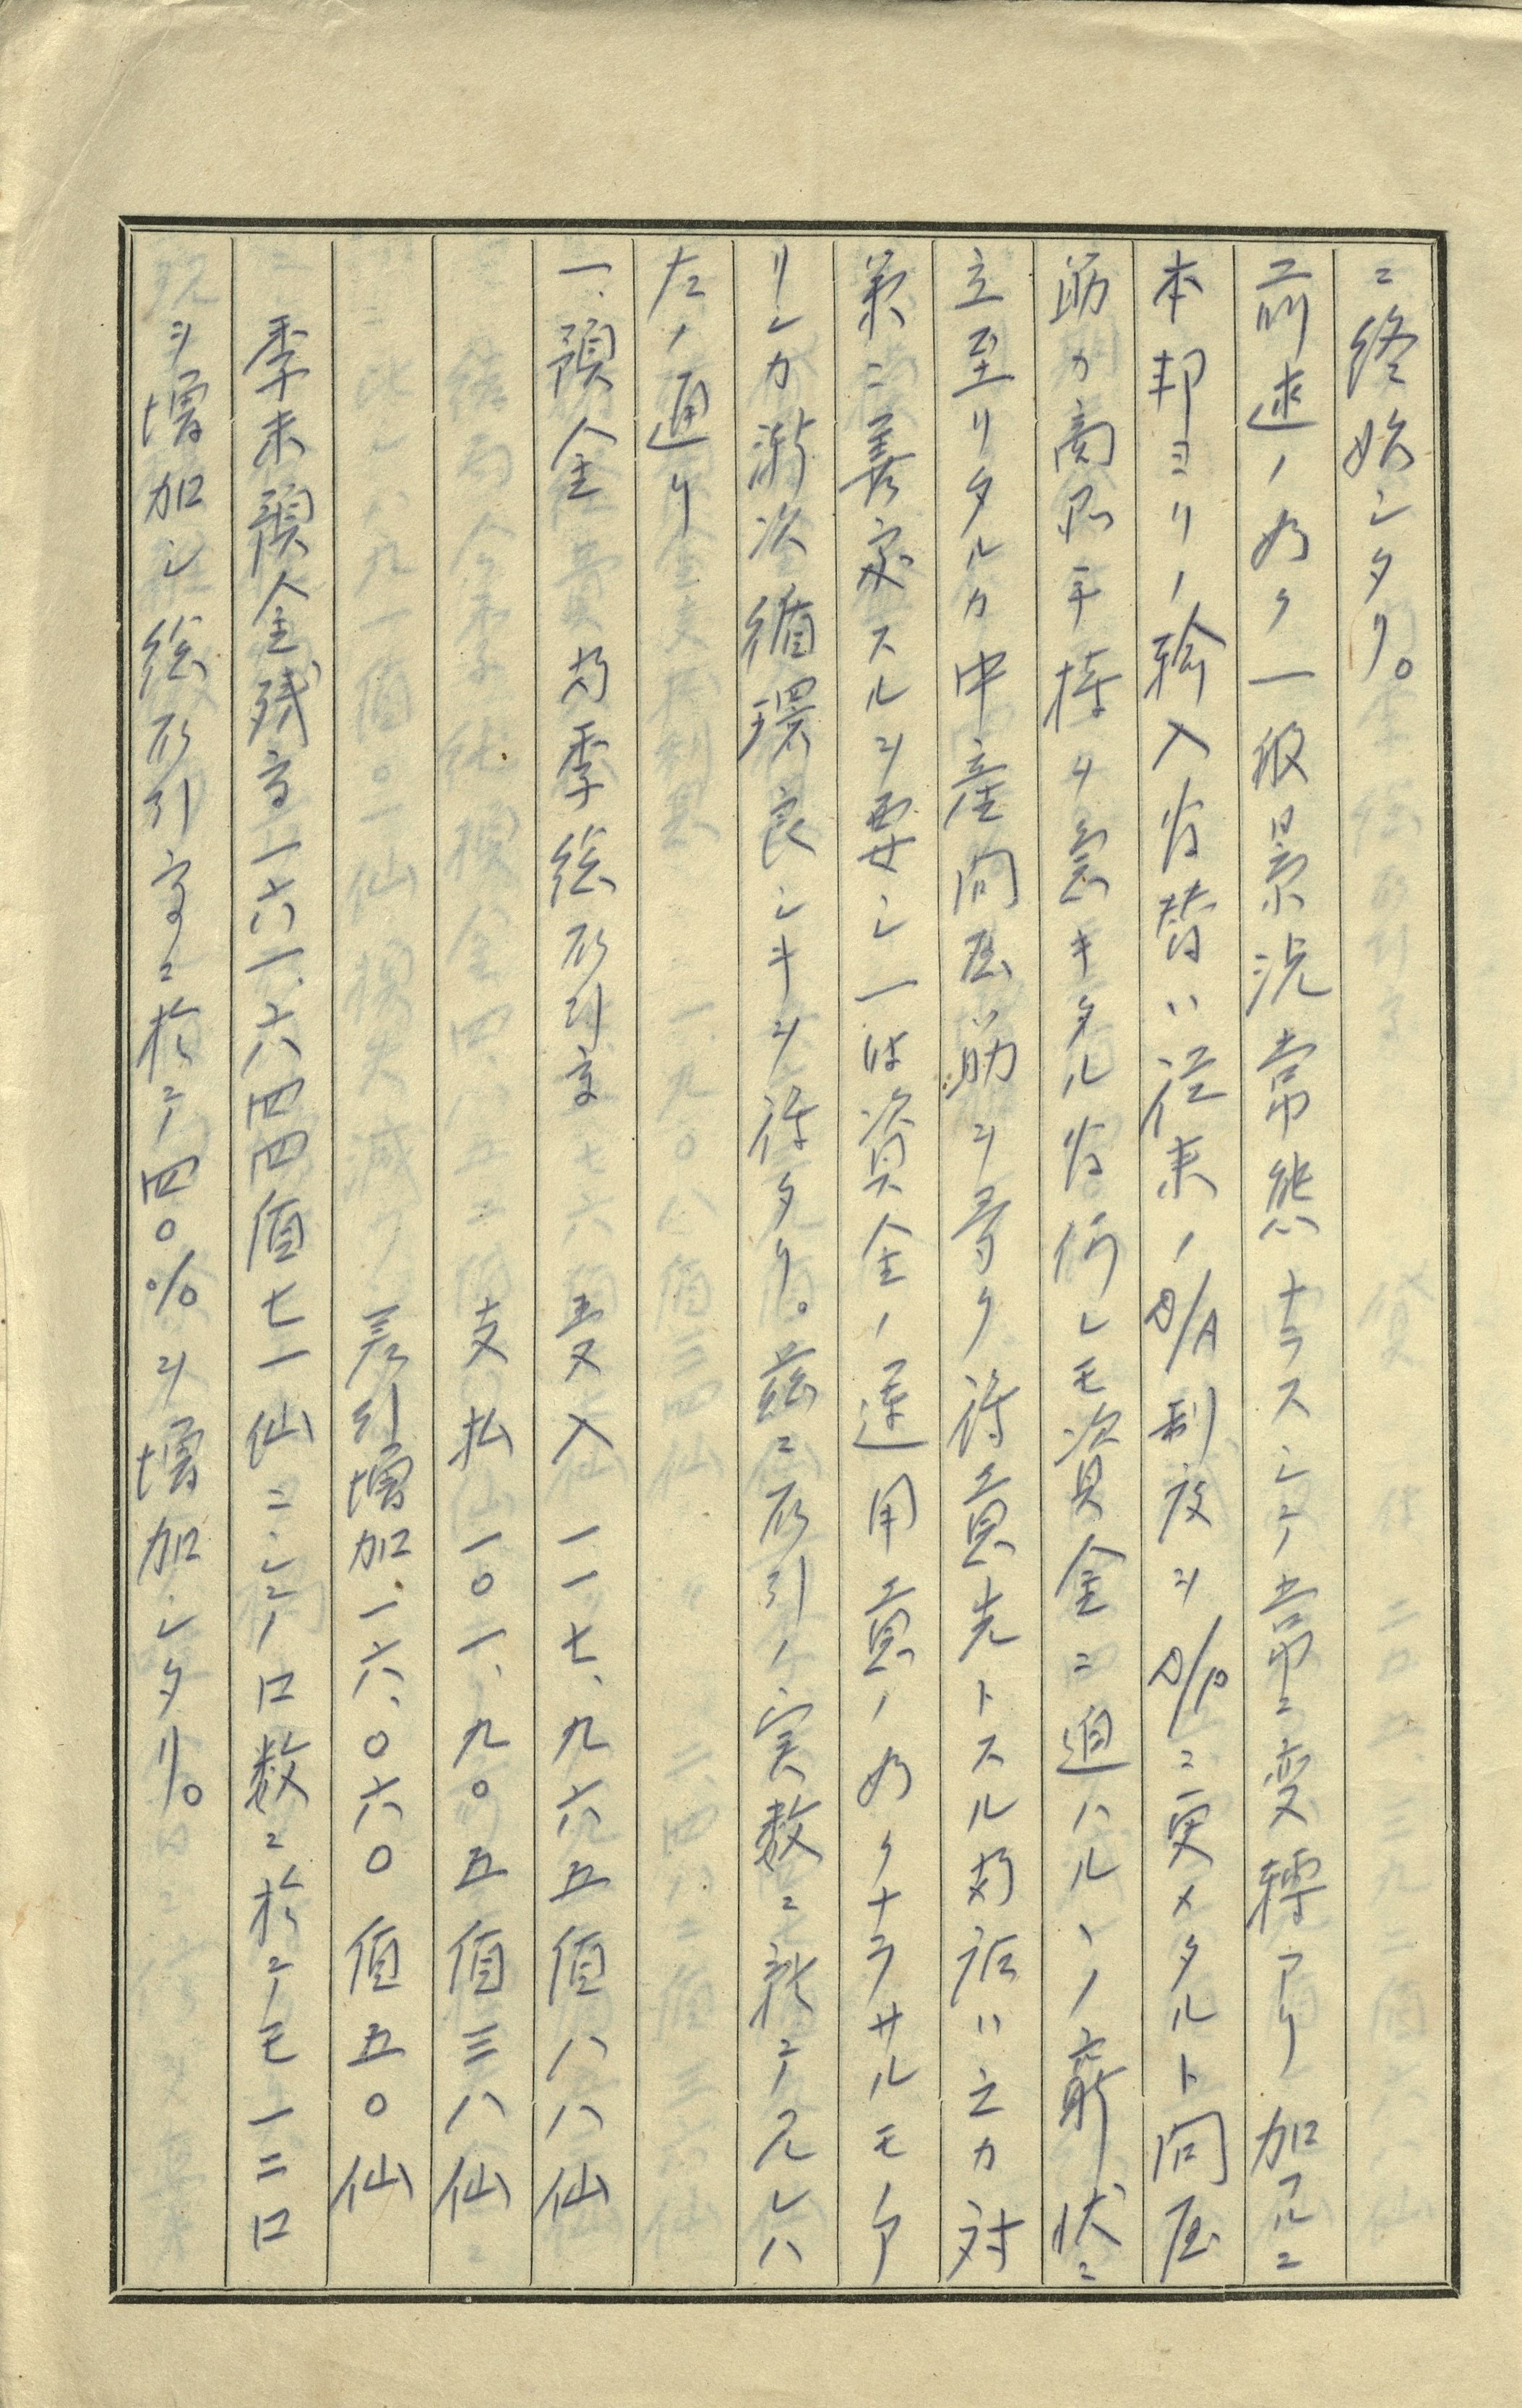 ニ終始シタリ。
前述ノ如ク一般景況常態ナラスシテ常ニ変轉アリ加フルニ
本邦ヨリノ輸入為替ハ従来ノD/A制度ヲD/Pニ更メタルト問屋
筋カ商品手持ヲ急キタル為何レモ資金ニ迫ハルヽノ窮状ニ
立至リタルカ中産問屋筋ヲ尋ク得意先トスル当店ハ之カ対
策ニ善家スルヲ要シ一時資金ノ運用意ノ如クナラサルモノア
リシカ漸次循環良シキヲ得タリ。茲ニ取引ノ実数ニ就テ見レハ
左ノ通リ
一、預金 当季総取引高 受入 一一七、九六五値八八仙
支払 一〇一、九〇五値三八仙
差引増加 一六、〇六〇値五〇仙
季末預金残高一六一、六四四値七一仙ニシテ口数ニ於テモ一二口
ヲ増加シ総取引高ニ於テ四〇%ヲ増加シタリ。